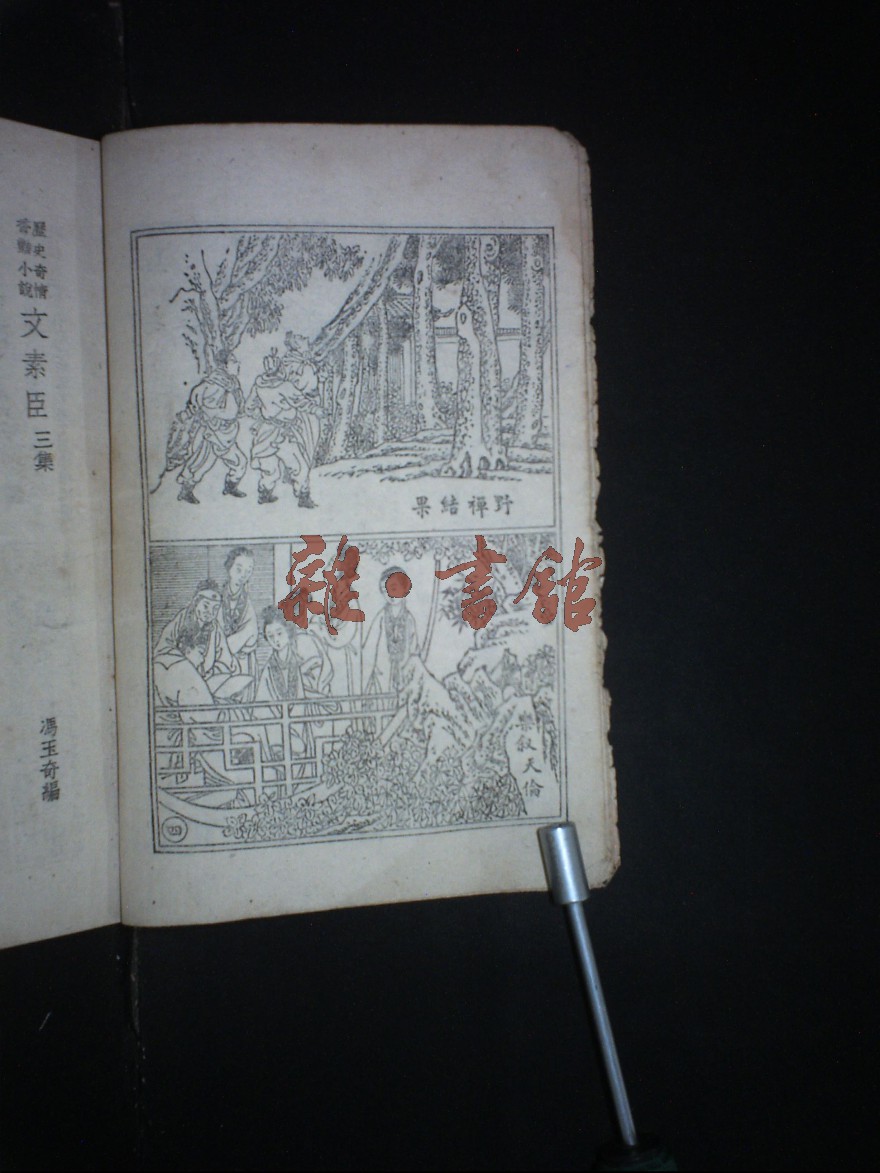 歷史奇情
香艷小說
文素臣 三集
馮玉奇編
野禪結果
樂叙天倫
四
雜•書館